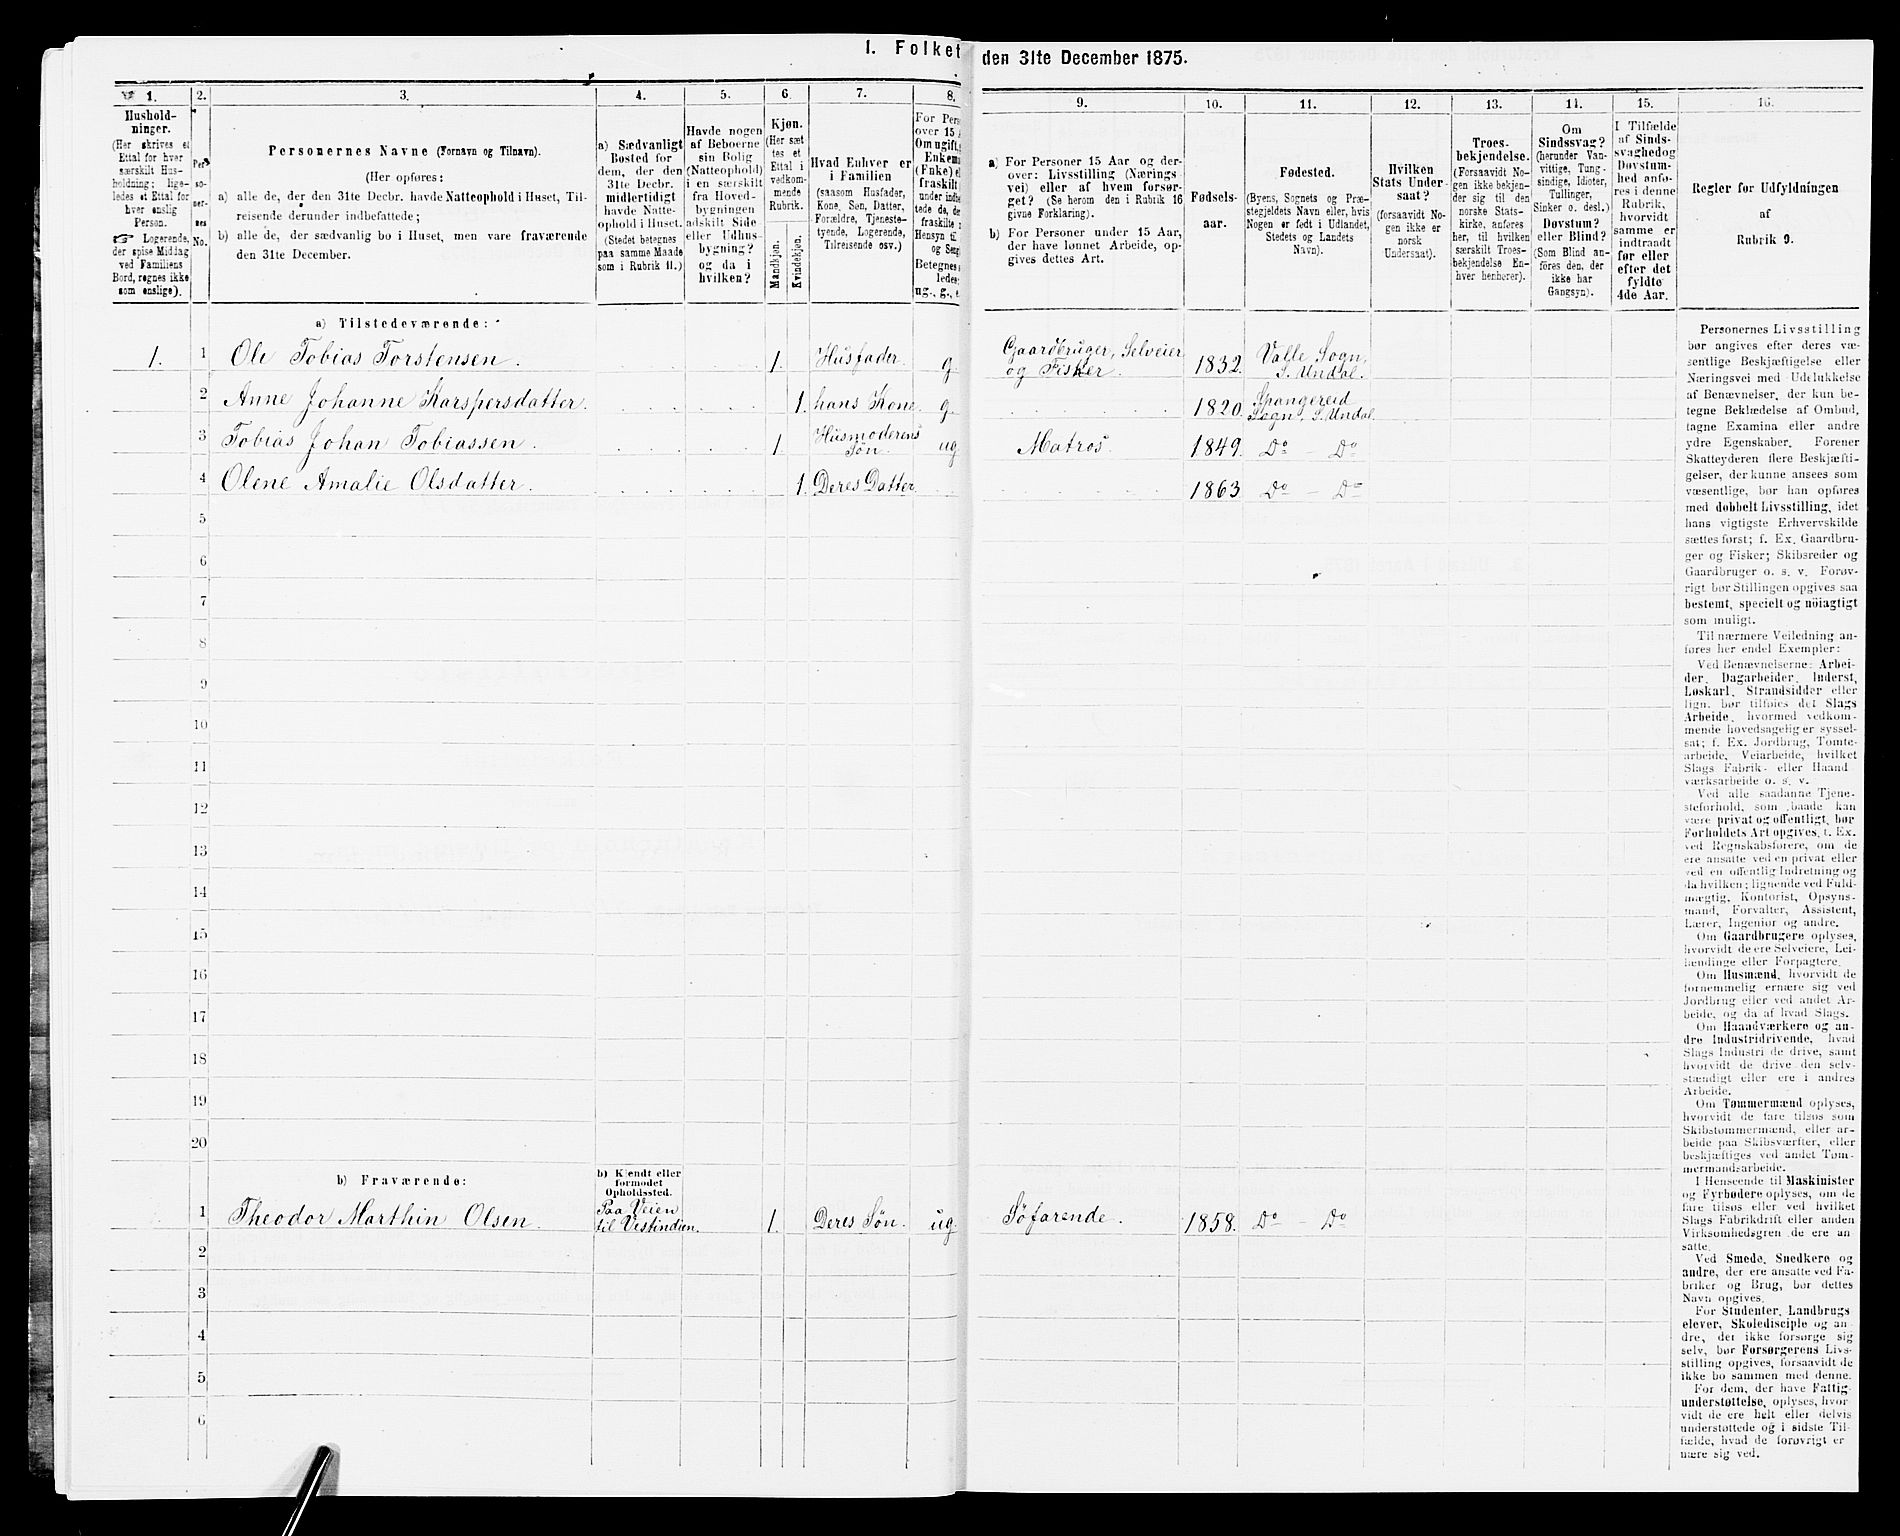 1. Folket
den 31te December 1875.
1.
Hushold-
ninger.
(Her skrives et
Ettal for hver
særskilt Hus-
holdning; lige-
ledes et Ettal for
hver enslig
Person.
☞ Logerende,
der spise Middag
ved Familiens
Bord, regnes ikke
som enslige).
2.
Per-
so-
ner-
nes
No.
3.
Personernes Navne (Fornavn og Tilnavn).
(Her opføres:
a) alle de, der den 31te Decbr. havde Natteophold i Huset, Til-
reisende derunder indbefattede;
b) alle de, der sædvanlig bo i Huset, men vare fraværende
den 31te December.
4.
a) Sædvanligt
Bosted for
dem, der den
31te Decbr.
midlertidigt
havde Natte-
ophold i Huset.
(Stedet betegnes
paa samme Maade
som i Rubrik 11.)
5.
Havde nogen
af Beboerne
sin Bolig
(Natteophold)
i en særskilt
fra Hoved-
bygningen
adskilt Side-
eller Udhus-
bygning?
og da i
hvilken?
6.
Kjøn.
(Her sæt-
tes et
Ettal i
vedkom-
mende
Rubrik.
Mandkjøn.
Kvindekjøn.
7.
Hvad Enhver er
i Familien
(saasom Husfader,
Kone, Søn, Datter,
Forældre, Tjeneste-
tyende, Logerende,
Tilreisende osv.)
8.
For Pers
over 15 A
Om ugift,
Enkema
(Enke) el
fraskilt
under indbe
tede de, de
fraskilte
Hensyn til
og Seng
Betegnes s
ledes:
ug., g., e.
9.
a) For Personer 15 Aar og der-
over: Livsstilling (Nærings-
vei) eller af hvem forsør-
get? (Se herom den i Rubrik 16
givne Forklaring).
b) For Personer under 15 Aar,
der have lønnet Arbeide, op-
gives dettes Art.
10.
Fødsels-
aar.
11.
Fødested.
(Byens, Sognets og Præ-
stegjeldets Navn eller, hvis
Nogen er født i Udlandet,
Stedets og Landets
Navn).
12.
Hvilken
Stats Under-
saat?
(forsaavidt No-
gen ikke er
norsk
Undersaat).
13.
Troes-
bekjendelse.
(Forsaavidt No-
gen ikke bekjen-
der sig til den
norske Stats-
kirke, anføres
her, til hvilken
særskilt Troes-
bekjendelse En-
hver henhører).
14.
Om
Sindssvag?
(herunder Van-
vittige, Tung-
sindige, Idioter,
Tullinger,
Sinker o. desl.)
Døvstum?
eller Blind?
(Som Blind an-
føres den, der
ikke har
Gangsyn).
15.
I Tilfælde
af Sinds-
svaghed og
Døvstum-
hed anfø-
res i denne
Rubrik,
hvorvidt
samme er
indtraadt
før eller
efter det
fyldte
4de Aar.
16.
Regler for Udfyldningen
af
Rubrik 9.
a) Tilstedeværende:
1. 1 Ole Tobias Torstensen. 1. Husfader. g. Gaardbruger, Selveier og Fisker. 1832. Valle Sogn, S. Undal.
2 Anne Johanne Karspersdatter. 1. hans Kone. g. 1820. Spangereid Sogn, S. Undal.
3 Tobias Johan Tobiassen. 1. Husmoderens Søn. ug. Matros. 1849. Do - Do
4 Olene Amalie Olsdatter. 1. Deres Datter. 1863 Do - Do
5
6
7
8
9
10
11
12
13
14
15
16
17
18
19
20
b) Fraværende:
b) Kjendt eller
formodet
Opholdssted.
1 Theodor Marthin Olsen. Paa Veien til Vestindien. 1. Deres Søn. ug. Söfarende. 1858. Do - Do
2
3
4
5
6
Personernes Livsstilling
bør angives efter deres væ-
sentlige Beskjæftigelse eller
Næringsvei med Udelukkelse
af Benævnelser, der kun be-
tegne Beklædelse af Ombud,
tagne Examina eller andre
ydre Egenskaber. Forener
Skatteyderen flere Beskjæfti-
gelser, der kunne ansees som
væsentlige, bør han opføres
med dobbelt Livsstilling, idet
hans vigtigste Erhvervskilde
sættes først; f. Ex. Gaardbru-
ger og Fisker; Skibsreder og
Gaardbruger o. s. v. Forøv-
rigt bør Stillingen opgives saa
bestemt, specielt og nöiagtigt
som muligt.
Til nærmere Veiledning an-
føres her endel Exempler:
Ved Benævnelserne: Arbei-
der, Dagarbeider, Inderst,
Løskarl, Strandsidder eller
lign. bør tilføies det Slags
Arbeide, hvormed vedkom-
mende hovedsagelig er syssel-
sat; f. Ex. Jordbrug, Tomte-
arbeide, Veiarbeide, hvilket
Slags Fabrik- eller Haand-
værksarbeide o. s. v.
Ved alle saadanne Tjene-
steforhold, som baade kan
være privat og offentligt, bør
Forholdets Art opgives, f. Ex.
ved Regnskabsførere, om de
ere ansatte ved en privat eller
ved en offentlig Indretning og
da hvilken; lignende ved Fuld-
mægtig, Kontorist, Opsyns-
mand, Forvalter, Assistent,
Lærer, Ingeniør og andre.
Om Gaardbrugere oplyses,
hvorvidt de ere Selveiere, Lei-
lændinge eller Forpagtere.
Om Husmænd, hvorvidt de
fornemmelig ernære sig ved
Jordbrug eller ved andet Ar-
beide, og da af hvad Slags.
Om Haandværkere og an-
dre Industridrivende, hvad
Slags Industri de drive, samt
hvorvidt de drive den selv-
stændigt eller ere i andres
Arbeide.
Om Tømmermænd oplyses,
hvorvidt de fare tilsøs som
Skibstømmermænd, eller ar-
beide paa Skibsværfter, eller
beskjæftiges ved andet Tøm-
mermandsarbeide.
I Henseende til Maskinister
og Fyrbødere oplyses, om de
fare tilsøs eller ved hvilket
Slags Fabrikdrift eller anden
Virksomhedsgren de ere an-
satte.
Ved Smede, Snedkere og
andre, der ere ansatte ved Fa-
briker og Brug, bør dettes
Navn opgives.
For Studenter, Landbrugs-
elever, Skoledisciple og an-
dre, der ikke forsørge sig
selv, bør Forsørgerens Livs-
stilling opgives, forsaavidt de
ikke bo sammen med denne.
For dem, der have Fattig-
understøttelse, oplyses, hvor-
vidt de ere helt eller delvis
understøttede og i sidste Til-
fælde, hvad de forøvrigt er-
nære sig ved.